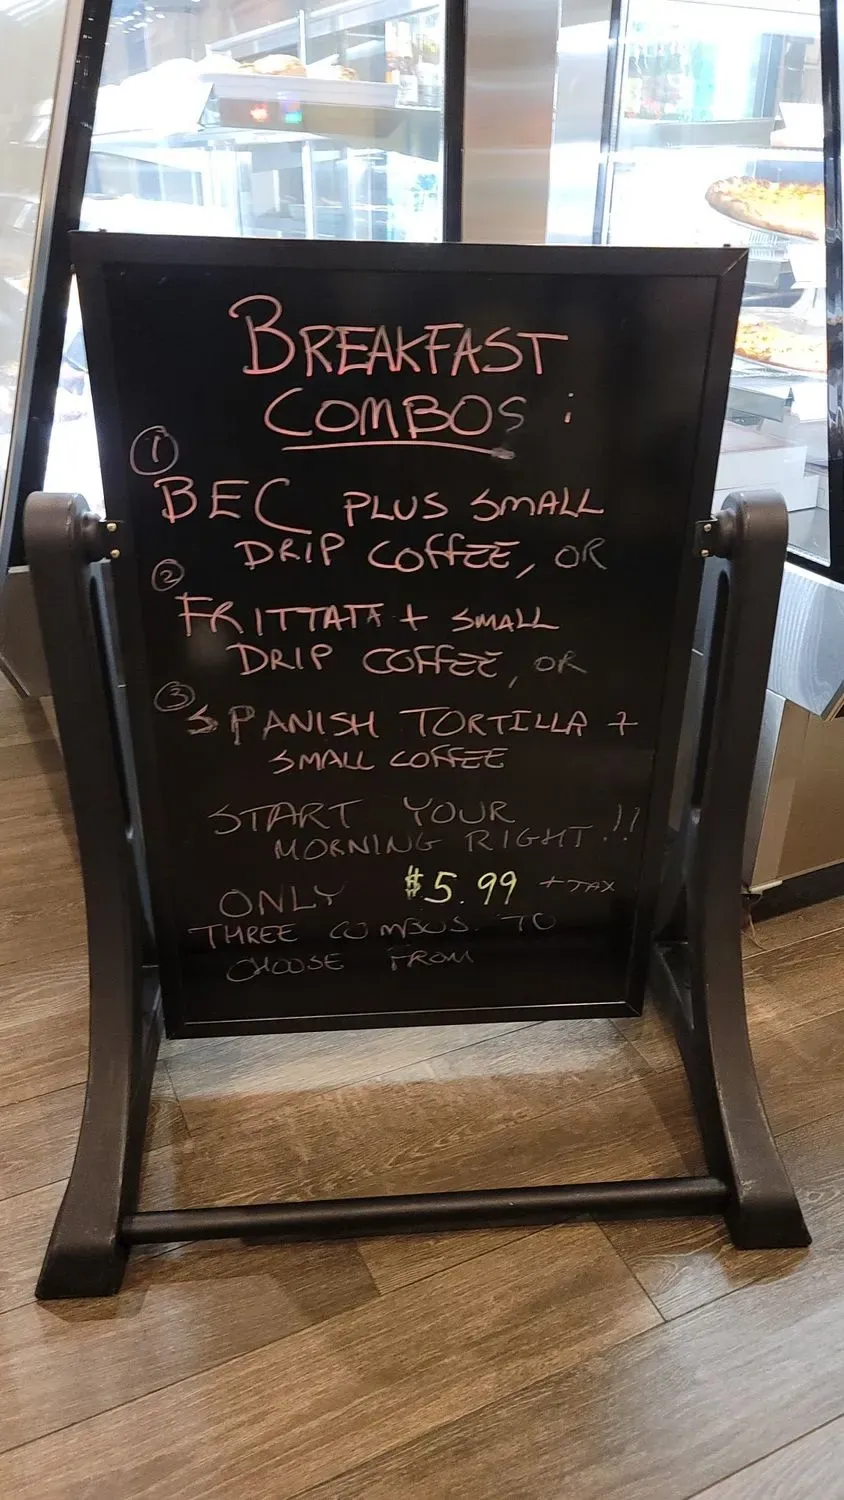 BREAKFAST
COMBOS :
1
BEC PLUS SMALL
DRIP COFFEE, OR
2
FRITTATA + SMALL
DRIP COFFEE, OR
3
SPANISH TORTILLA +
SMALL COFFEE
START YOUR
MORNING RIGHT!!
ONLY $5.99 + TAX
THREE COMBOS TO
CHOOSE FROM